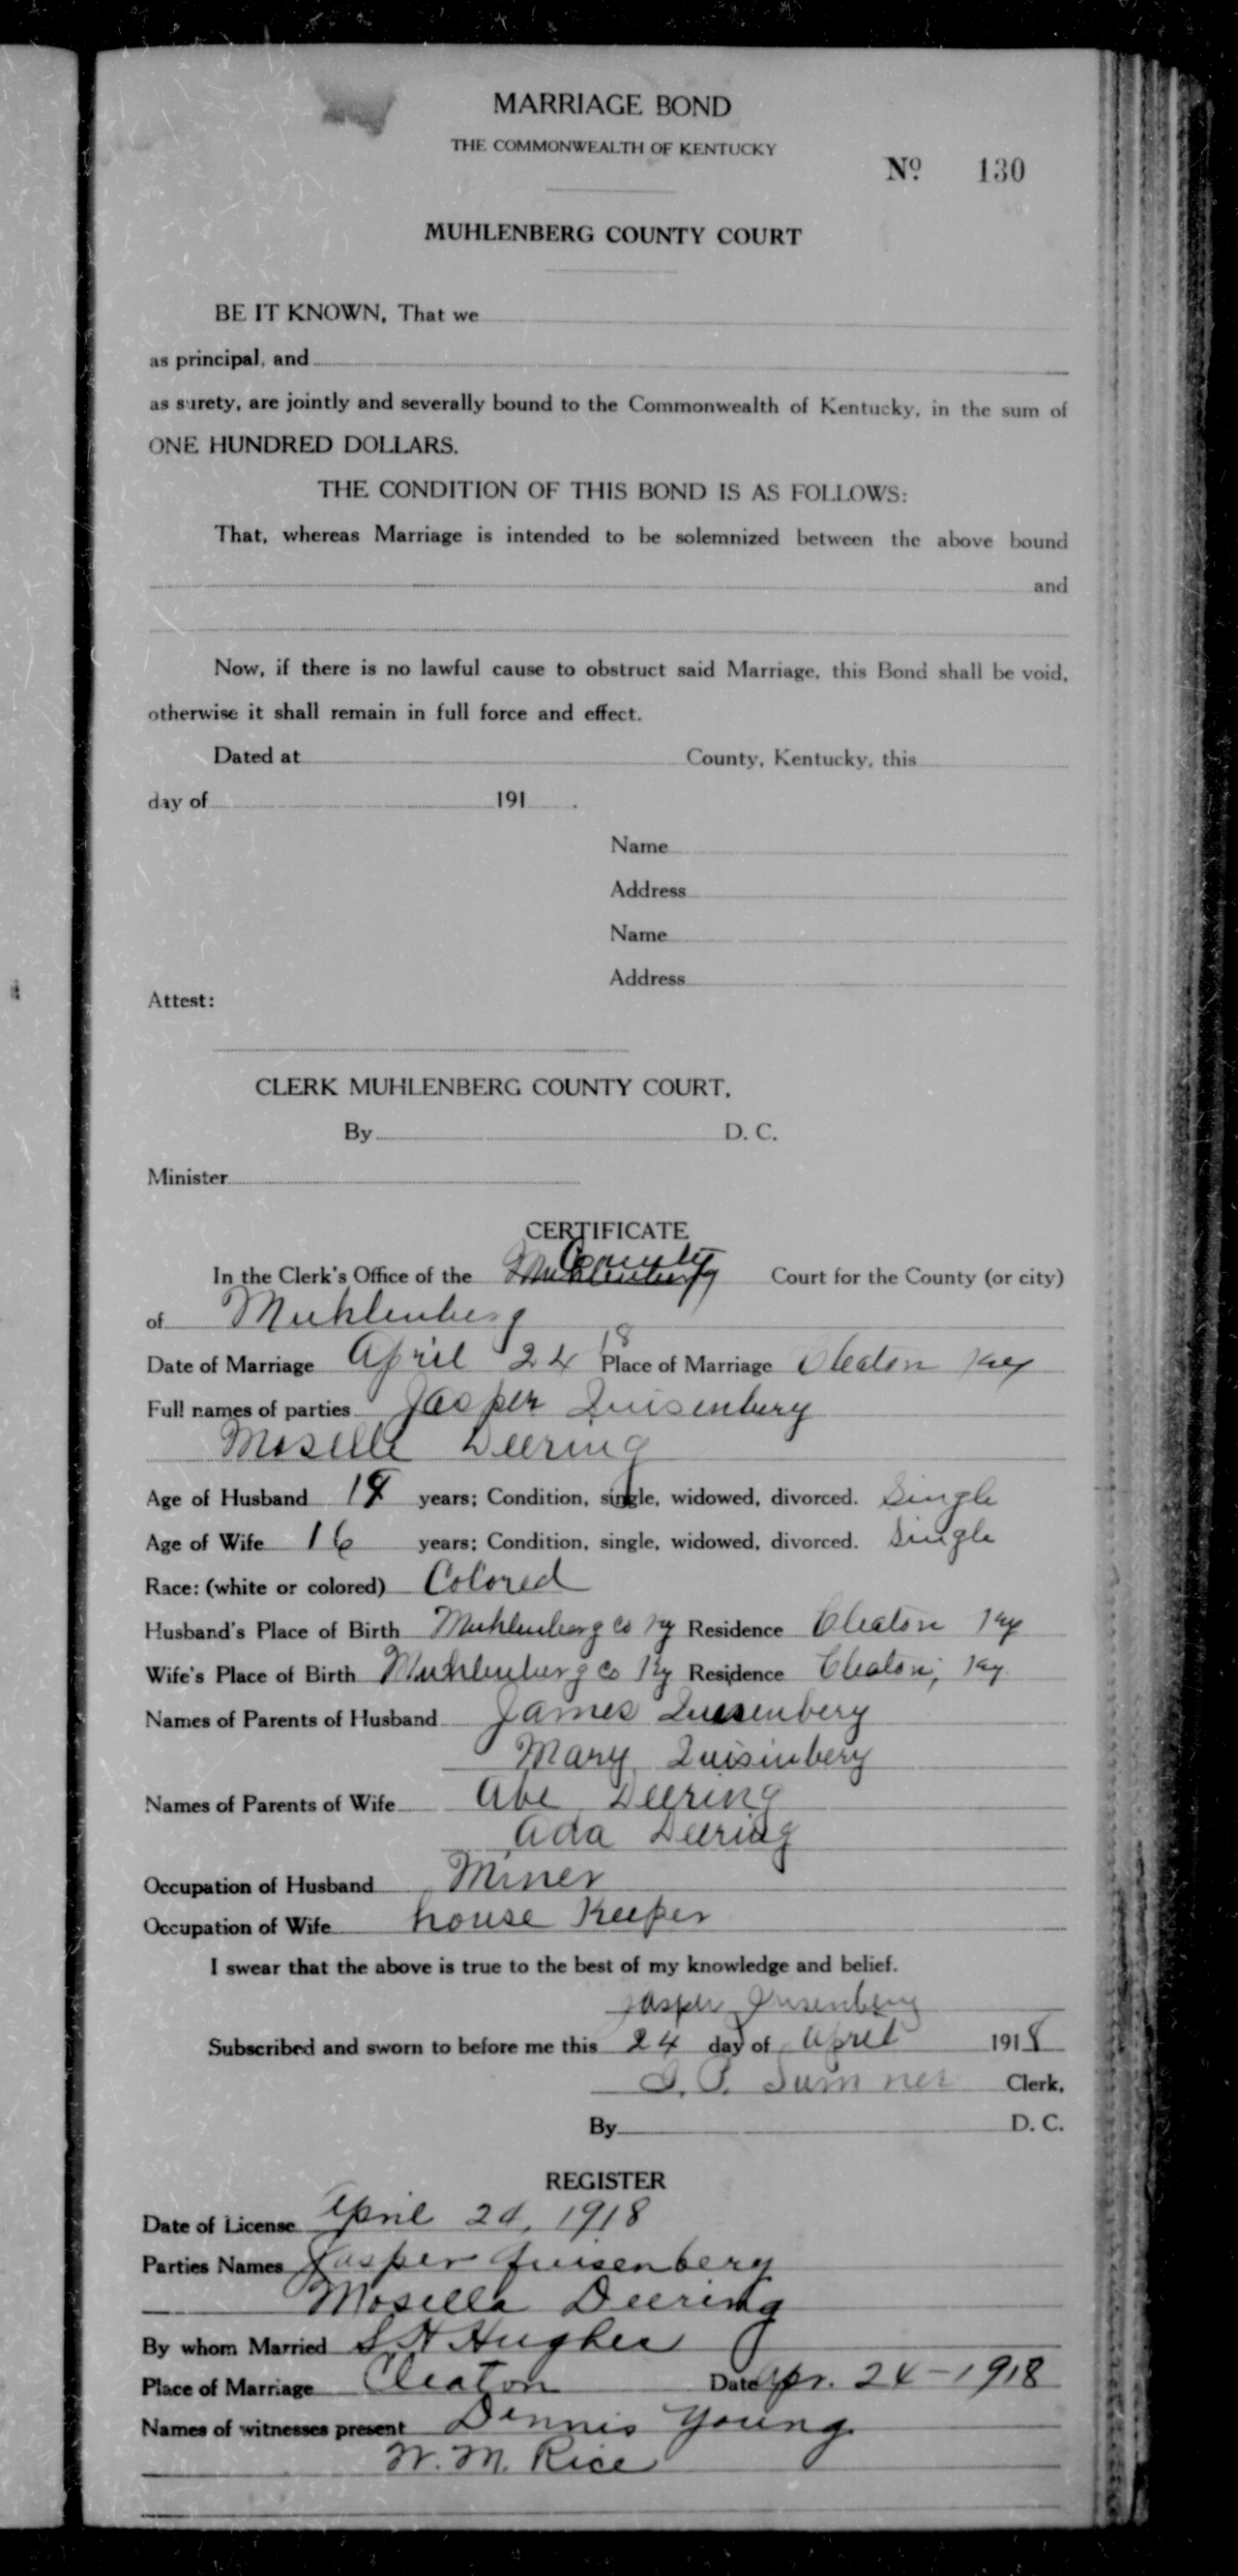 MARRIAGE BOND
THE COMMONWEALTH OF KENTUCKY
Nº 130
MUHLENBERG COUNTY COURT
BE IT KNOWN, That we
as principal, and
as surety, are jointly and severally bound to the Commonwealth of Kentucky, in the sum of
ONE HUNDRED DOLLARS.
THE CONDITION OF THIS BOND IS AS FOLLOWS:
That, whereas Marriage is intended to be solemnized between the above bound
and
Now, if there is no lawful cause to obstruct said Marriage, this Bond shall be void,
otherwise it shall remain in full force and effect.
Dated at County, Kentucky, this
day of 191 .
Name
Address
Name
Address
Attest:
CLERK MUHLENBERG COUNTY COURT,
By D. C.
Minister
CERTIFICATE
County
In the Clerk's Office of the Muhlenberg Court for the County (or city)
of Muhlenberg
Date of Marriage April 24 18 Place of Marriage Cleaton Ky
Full names of parties Jasper Quisenbery
Moselle Deering
Age of Husband years; Condition, single, widowed, divorced. Single
Age of Wife 16 years; Condition, single, widowed, divorced. Single
Race: (white or colored) Colored
Husband's Place of Birth Muhlenberg Co Ky Residence Cleaton Ky
Wife's Place of Birth Muhlenberg Co Ky Residence Cleaton, Ky.
Names of Parents of Husband James Quisenbery
Mary Quisinbery
Names of Parents of Wife Abe Deering
Ada Deering
Occupation of Husband Miner
Occupation of Wife house Keeper
I swear that the above is true to the best of my knowledge and belief.
Jasper Qusenbery
Subscribed and sworn to before me this 24 day of April 1918
Sumner Clerk,
By D. C.
REGISTER
Date of License April 24, 1918
Parties Names Jasper Quisenbery
Mosella Deering
By whom Married S H Hughes
Place of Marriage Cleaton Date Apr. 24-1918
Names of witnesses present Dennis Young
W. M. Rice